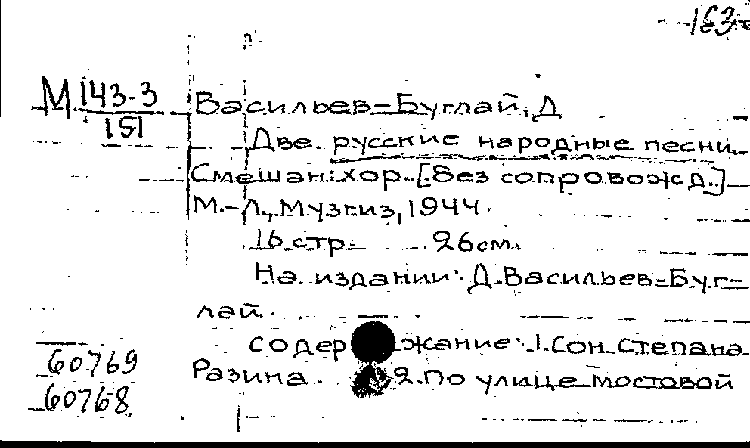 -163-
М 143-3
151
Васильев-Буглай, Д
Две русские народные песни.
Смешан. хор. [Без сопровожд.]
М.-Л., Музгиз, 1944.
16 стр. 26см.
На издании: Д. Васильев-Буг-
лай.
содержание: 1. Сон Степана
Разина. 2. По улице мостовой
60769
60768